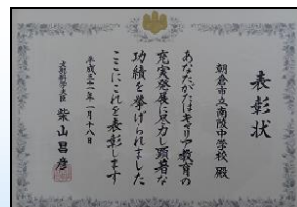 表彰状
朝倉市立南陵中学校 殿
あなたがたはキャリア教育の
充実発展に尽力し顕著な
功績を挙げられました
ここにこれを表彰します
平成三十一年一月十八日
文部科学大臣 柴山昌彦